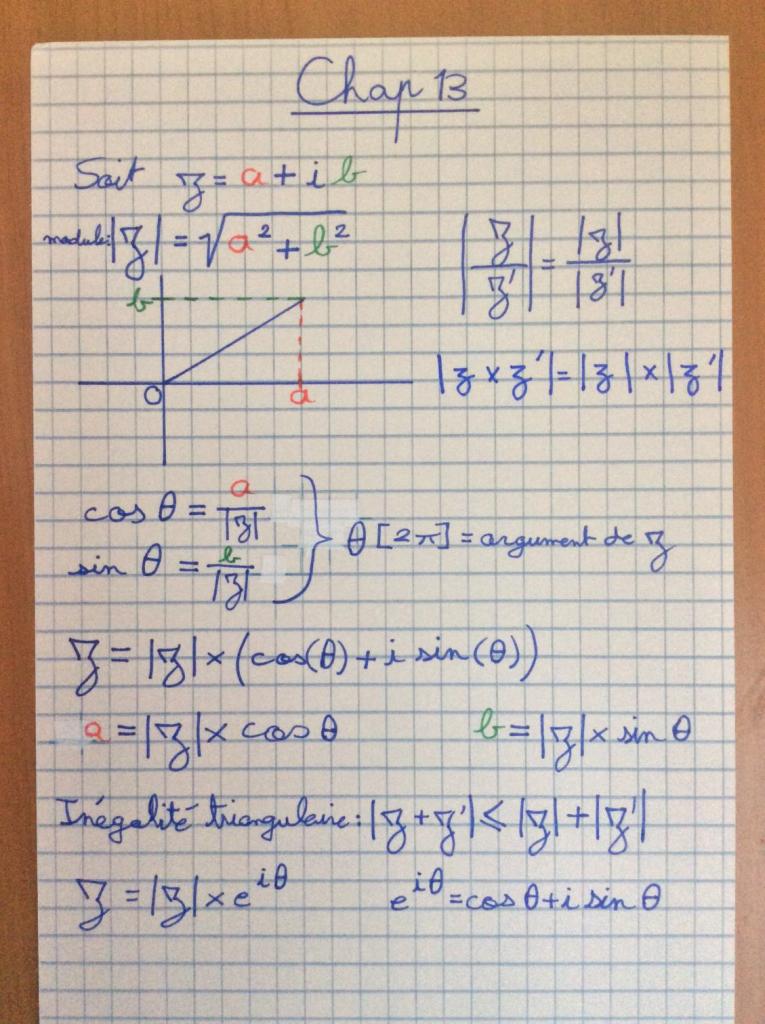 Chap 13
Soit z = a + i b
module: |z| = √(a² + b²)
|z/z'| = |z|/|z'|
b
O a
|z × z'| = |z| × |z'|
cos θ = a/|z|
sin θ = b/|z|
} θ [2π] = argument de z
z = |z| × (cos(θ) + i sin(θ))
a = |z| × cos θ b = |z| × sin θ
Inégalité triangulaire : |z + z'| ≤ |z| + |z'|
z = |z| × e^{iθ} e^{iθ} = cos θ + i sin θ